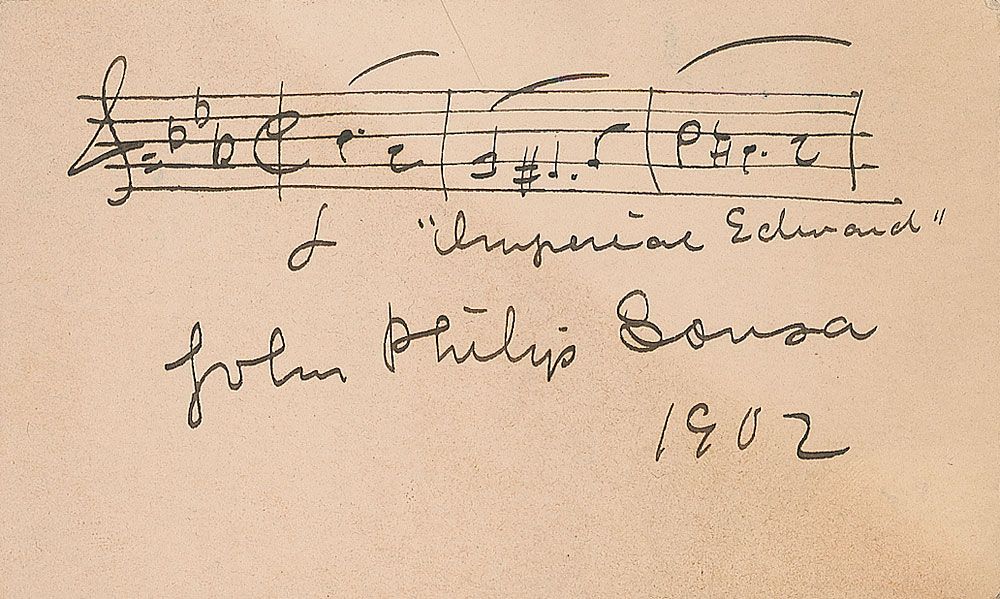 "Imperial Edward"
John Philip Sousa
1902